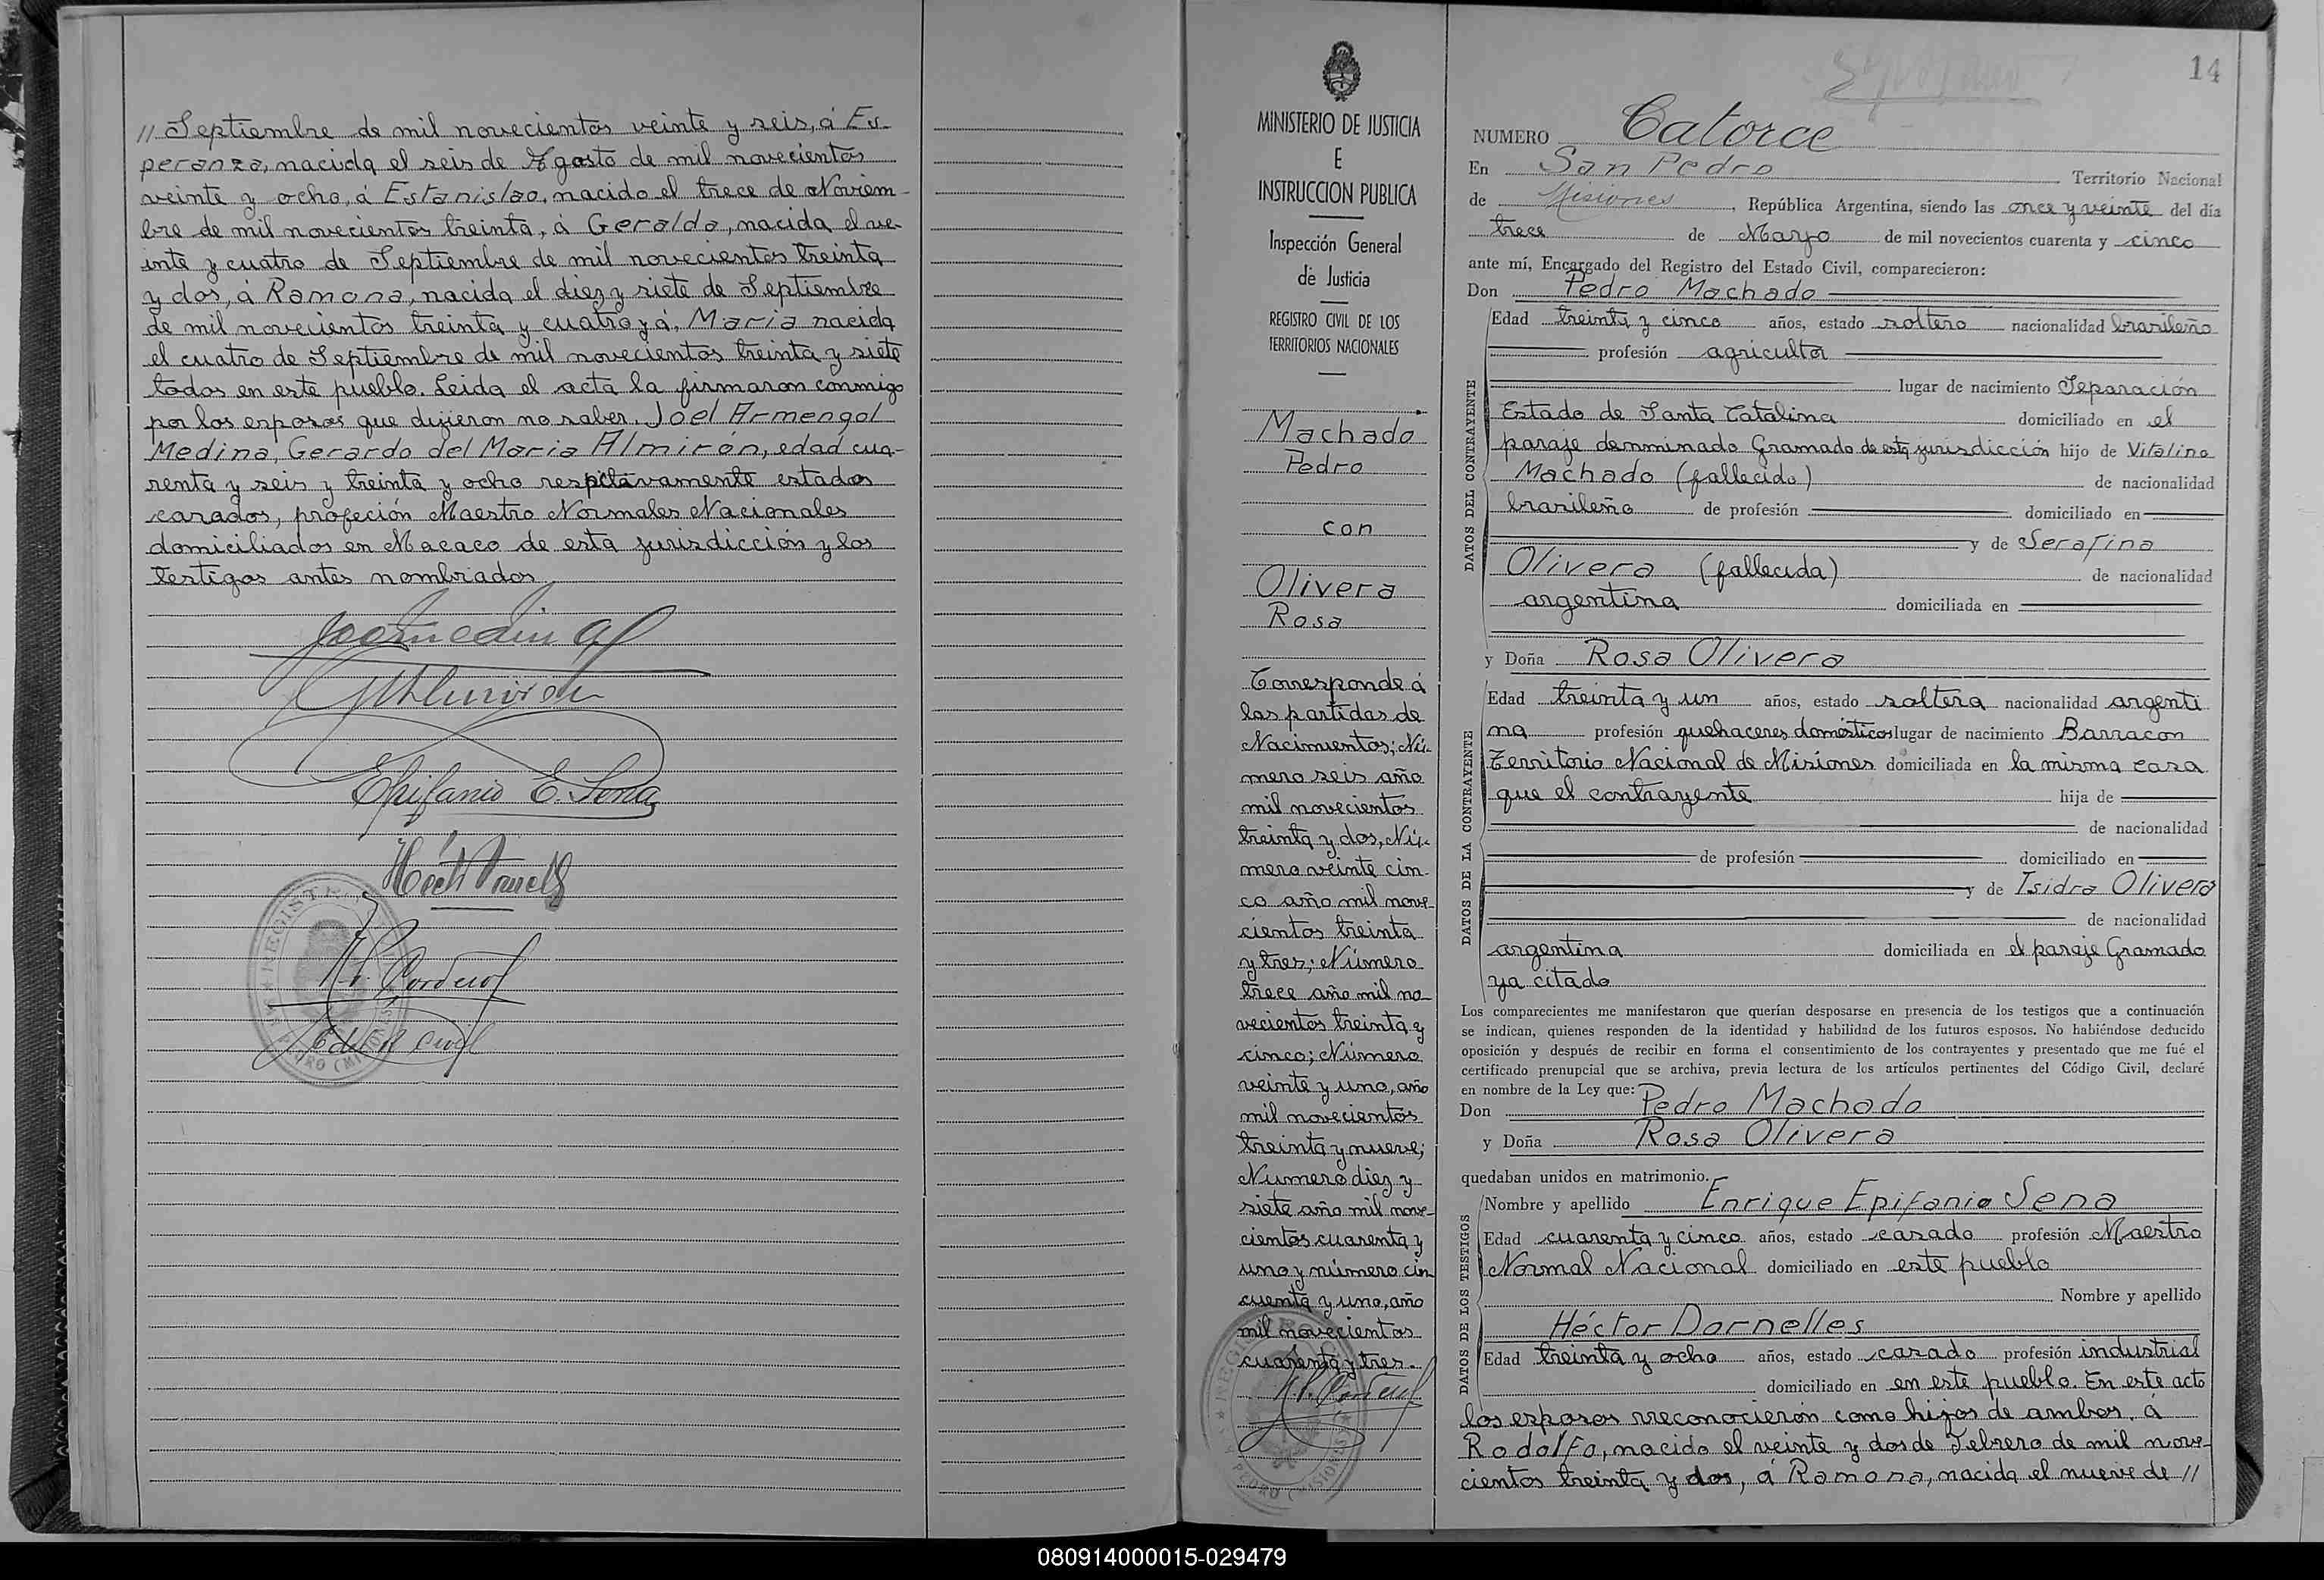 // Septiembre de mil novecientos veinte y seis, á Es-
peranza, nacida el seis de Agosto de mil novecientos
veinte y ocho, á Estanislao, nacido el trece de Noviem-
bre de mil novecientos treinta, á Geralda, nacida el ve-
inte y cuatro de Septiembre de mil novecientos treinta
y dos, á Ramona, nacida el diez y siete de Septiembre
de mil novecientos treinta y cuatro y á, Maria nacida
el cuatro de Septiembre de mil novecientos treinta y siete
todos en este pueblo. Leida el acta la firmaron conmigo
por los esposos que dijieron no saber. Joel Armengol
Medina, Gerardo del Maria Almirón, edad cua-
renta y seis y treinta y ocho respetivamente estados
casados, profeción Maestro Normales Nacionales
domiciliados en Macaco de esta jurisdicción y los
testigos antes nombrados
Epifanio E. Sena
E. del R Civil
MINISTERIO DE JUSTICIA
E
INSTRUCCION PUBLICA
Inspección General
de Justicia
REGISTRO CIVIL DE LOS
TERRITORIOS NACIONALES
Machado
Pedro
con
Olivera
Rosa
Corresponde á
las partidas de
Nacimientos; Nú-
mero seis año
mil novecientos
treinta y dos, Nú-
mero veinte cin-
co año mil nove-
cientos treinta
y tres; Número
trece año mil no-
vecientos treinta y
cinco; Número
veinte y uno, año
mil novecientos
treinta y nueve;
Numero diez y
siete año mil nove-
cientos cuarenta y
uno y número cin
cuenta y uno, año
mil novecientos
cuarenta y tres.-
14
NUMERO Catorce
En San Pedro Territorio Nacional
de Misiones, República Argentina, siendo las once y veinte del día
trece de Marzo de mil novecientos cuarenta y cinco
ante mí, Encargado del Registro del Estado Civil, comparecieron:
Don Pedro Machado
DATOS DEL CONTRAYENTE
Edad treinta y cinco años, estado soltero nacionalidad brasileño
profesión agricultor
lugar de nacimiento Separación
Estado de Santa Catalina domiciliado en el
paraje denminado Gramado de esta jurisdicción hijo de Vitalino
Machado (fallecido) de nacionalidad
brasileño de profesión domiciliado en
y de Serafina
Olivera (fallecida) de nacionalidad
argentina domiciliada en
y Doña Rosa Olivera
DATOS DE LA CONTRAYENTE
Edad treinta y un años, estado soltera nacionalidad argenti
na profesión quehaceres domésticos lugar de nacimiento Barracon
Territorio Nacional de Misiones domiciliada en la misma casa
que el contrayente hija de
de nacionalidad
de profesión domiciliado en
y de Isidra Olivera
de nacionalidad
argentina domiciliada en el paraje Gramado
ya citado
Los comparecientes me manifestaron que querían desposarse en presencia de los testigos que a continuación
se indican, quienes responden de la identidad y habilidad de los futuros esposos. No habiéndose deducido
oposición y después de recibir en forma el consentimiento de los contrayentes y presentado que me fué el
certificado prenupcial que se archiva, previa lectura de los artículos pertinentes del Código Civil, declaré
en nombre de la Ley que:
Don Pedro Machado
y Doña Rosa Olivera
quedaban unidos en matrimonio.
DATOS DE LOS TESTIGOS
Nombre y apellido Enrique Epifanio Sena
Edad cuarenta y cinco años, estado casado profesión Maestro
Normal Nacional domiciliado en este pueblo
Nombre y apellido
Héctor Dornelles
Edad treinta y ocho años, estado casado profesión industrial
domiciliado en en este pueblo. En este acto
los esposos rreconocieron como hijos de ambos, á
Rodolfo, nacido el veinte y dos de Febrero de mil nove-
cientos treinta y dos, á Ramona, nacida el nueve de //
080914000015-029479